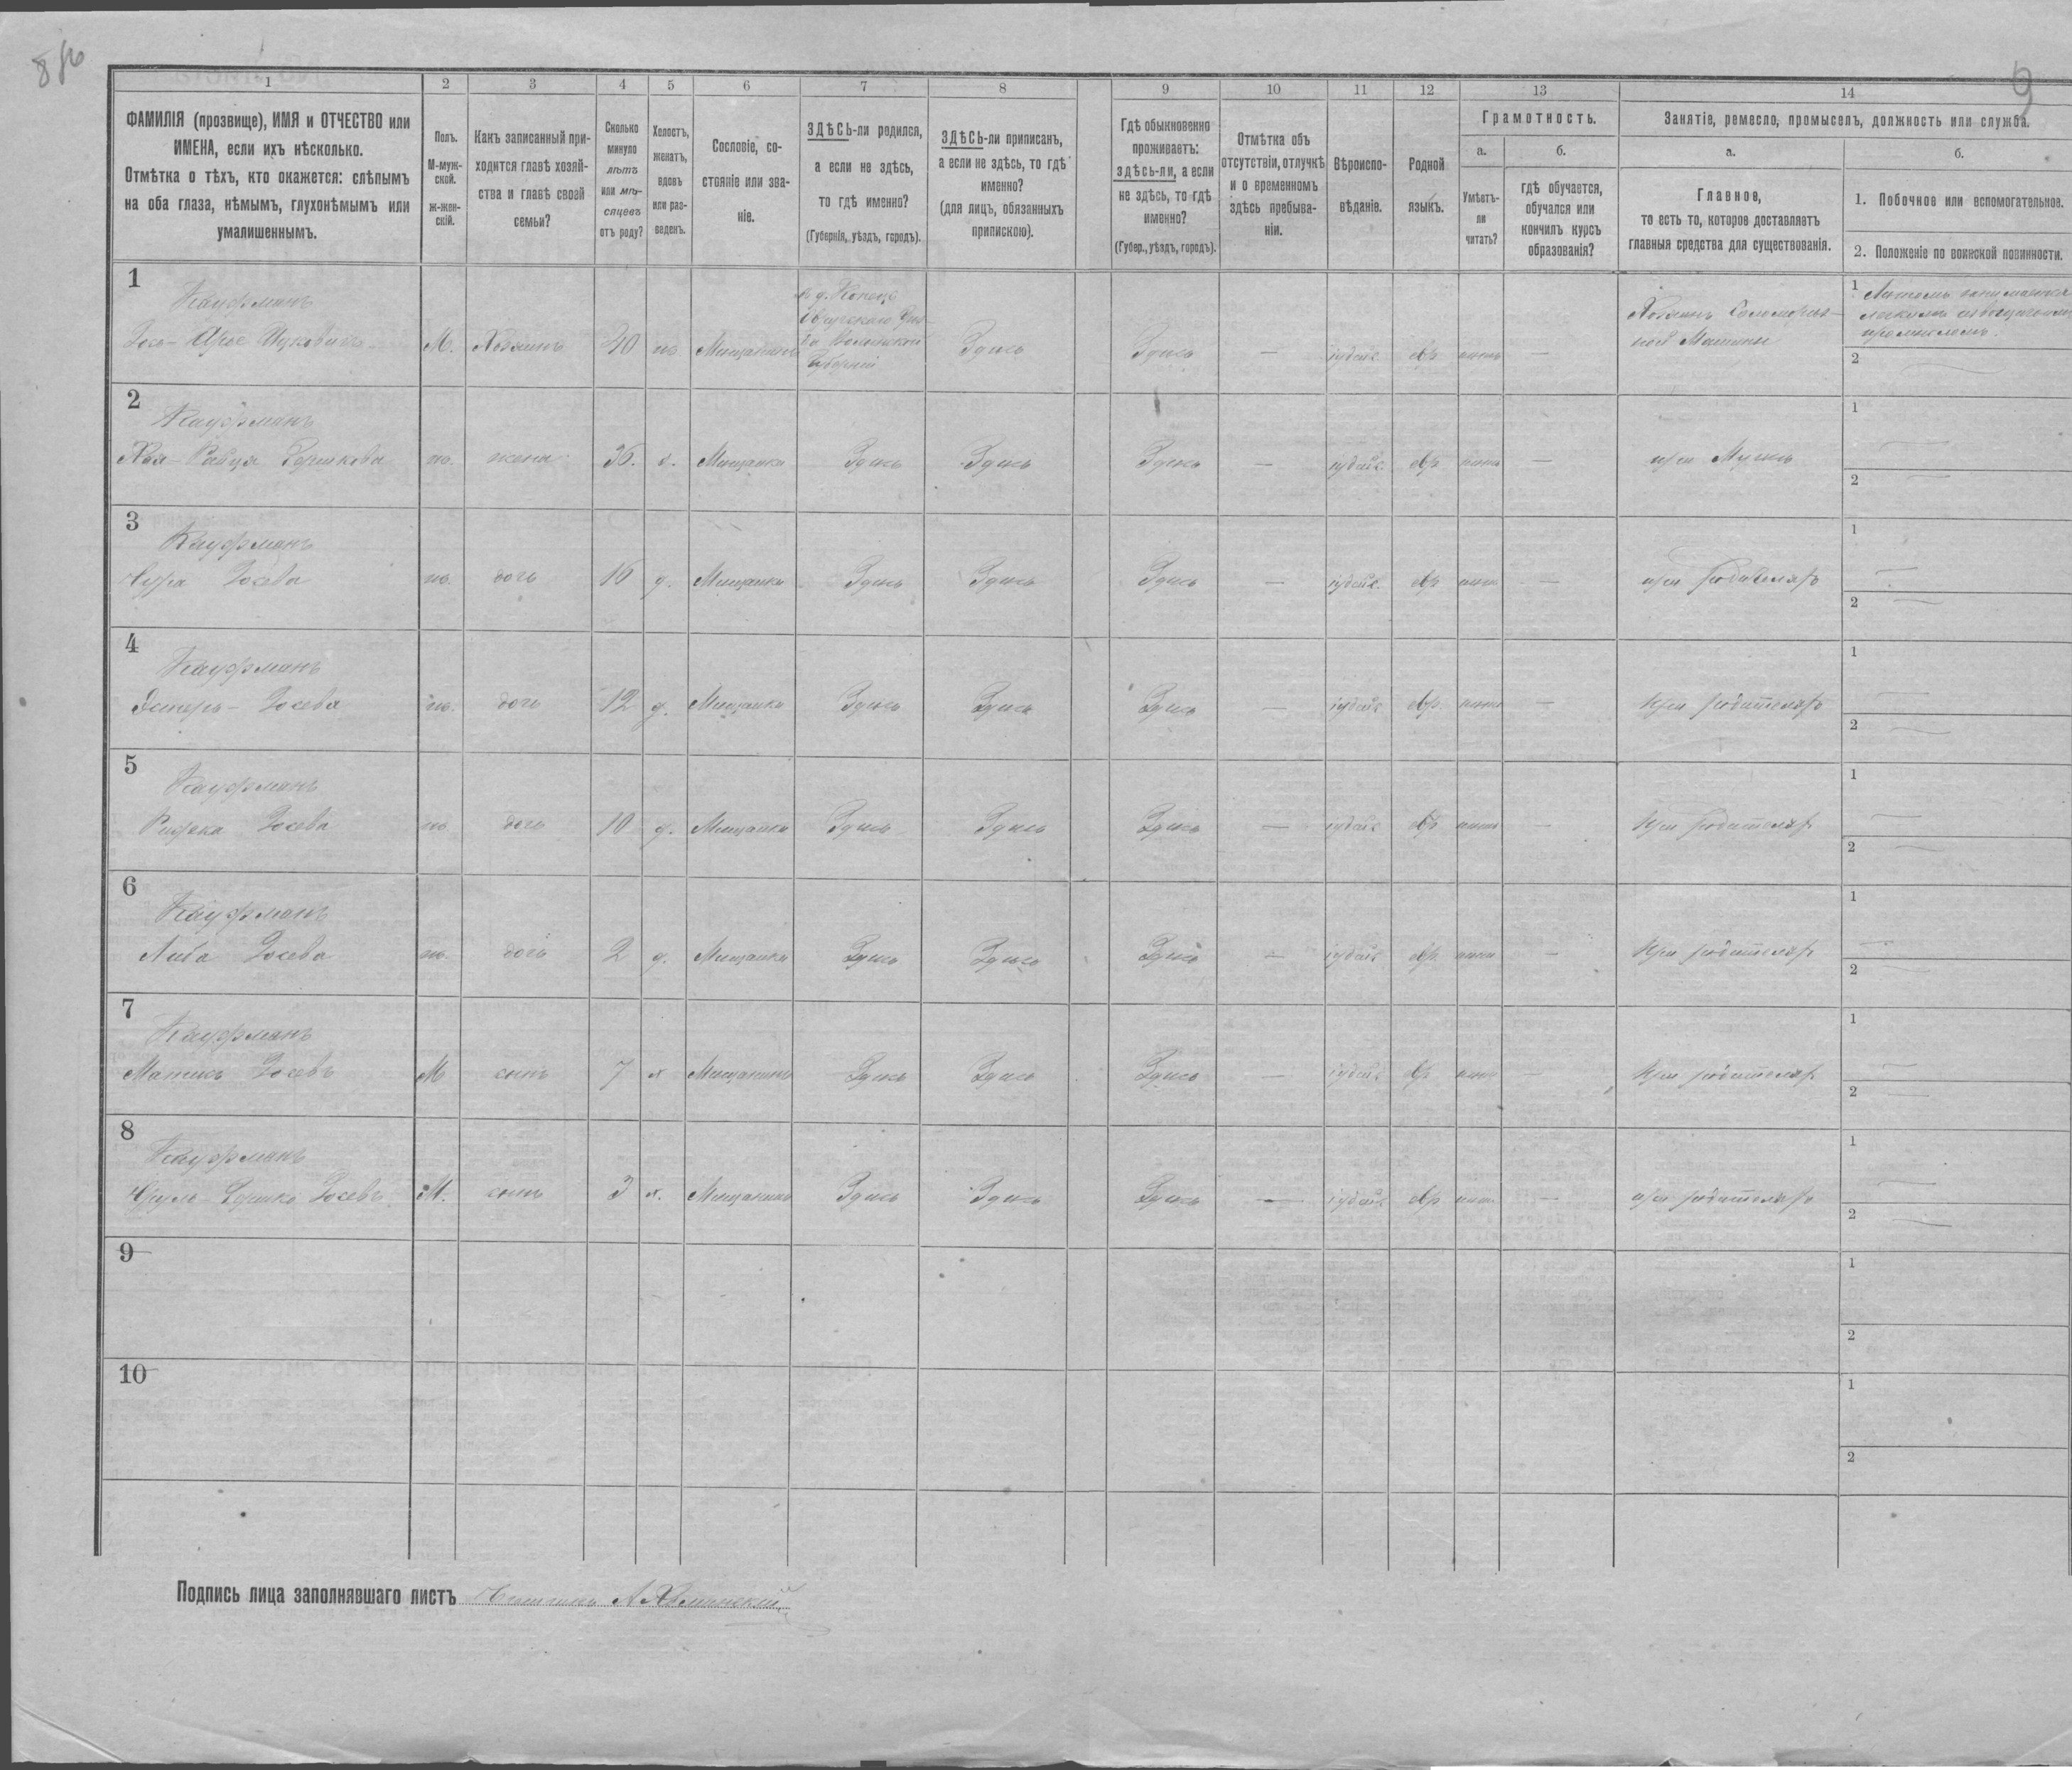 1 2 3 4 5 6 7 8 9 10 11 12 13 14
ФАМИЛІЯ (прозвище), ИМЯ и ОТЧЕСТВО или
ИМЕНА, если ихъ нѣсколько.
Отмѣтка о тѣхъ, кто окажется: слѣпымъ
на оба глаза, нѣмымъ, глухонѣмымъ или
умалишеннымъ.
Полъ.
М-муж-
ской.
ж-жен-
скій.
Какъ записанный при-
ходится главѣ хозяй-
ства и главѣ своей
семьи?
Сколько
минуло
лѣтъ
или мѣ-
сяцевъ
отъ роду?
Холостъ,
женатъ,
вдовъ
или раз-
веденъ.
Сословіе, со-
стояніе или зва-
ніе.
ЗДѢСЬ-ли родился,
а если не здѣсь,
то гдѣ именно?
(Губернія, уѣздъ, городъ).
ЗДѢСЬ-ли приписанъ,
а если не здѣсь, то гдѣ
именно?
(для лицъ, обязанныхъ
припискою).
Гдѣ обыкновенно
проживаетъ:
здѣсь-ли, а если
не здѣсь, то гдѣ
именно?
(Губер., уѣздъ, городъ).
Отмѣтка объ
отсутствіи, отлучкѣ
и о временномъ
здѣсь пребыва-
ніи.
Вѣроиспо-
вѣданіе.
Родной
языкъ.
Грамотность.
а.
Умѣетъ-
ли
читать?
б.
гдѣ обучается,
обучался или
кончилъ курсъ
образованія?
Занятіе, ремесло, промыселъ, должность или служба.
а.
Главное,
то есть то, которое доставляетъ
главныя средства для существованія.
б.
1. Побочное или вспомогательное.
2. Положеніе по воинской повинности.
1
Кауфманъ
М. Хозяинъ Мещанинъ
Волынской
Губерніи
Здѣсь Здѣсь — іудейс. евр —
Хозяинъ
Машины
1 Лѣтомъ занимается
легкимъ извозчичьимъ
промысломъ.
2
2
Кауфманъ
Хая- Гершкова ж. жена 36. з. Мещанка Здѣсь Здѣсь Здѣсь — іудейс. евр — при Мужѣ
1
2
3
Кауфманъ
Сура Іосева ж. дочь 16 д. Мещанка Здѣсь Здѣсь Здѣсь — іудейс. евр — при родителяхъ
1
2
4
Кауфманъ
Эстеръ- Іосева ж. дочь 12 д. Мещанка Здѣсь Здѣсь Здѣсь — іудейс. евр — при родителяхъ
1
2
5
Кауфманъ
Рифка Іосева ж. дочь 10 д. Мещанка Здѣсь Здѣсь Здѣсь — іудейс евр — при родителях
1
2
6
Кауфманъ
Либа Іосева ж. дочь 2 д. Мещанка Здѣсь Здѣсь Здѣсь — іудейс евр — при родителях
1
2
7
Кауфманъ
Матись Іосевъ М сынъ 7 х Мещанинъ Здѣсь Здѣсь Здѣсь — іудейс евр — при родителях
1
2
8
Кауфманъ
Гершко Іосевъ М. сынъ 3 х. Мещанинъ Здѣсь Здѣсь Здѣсь — іудейс евр — при родителяхъ
1
2
9
1
2
10
1
2
Подпись лица заполнявшаго листъ